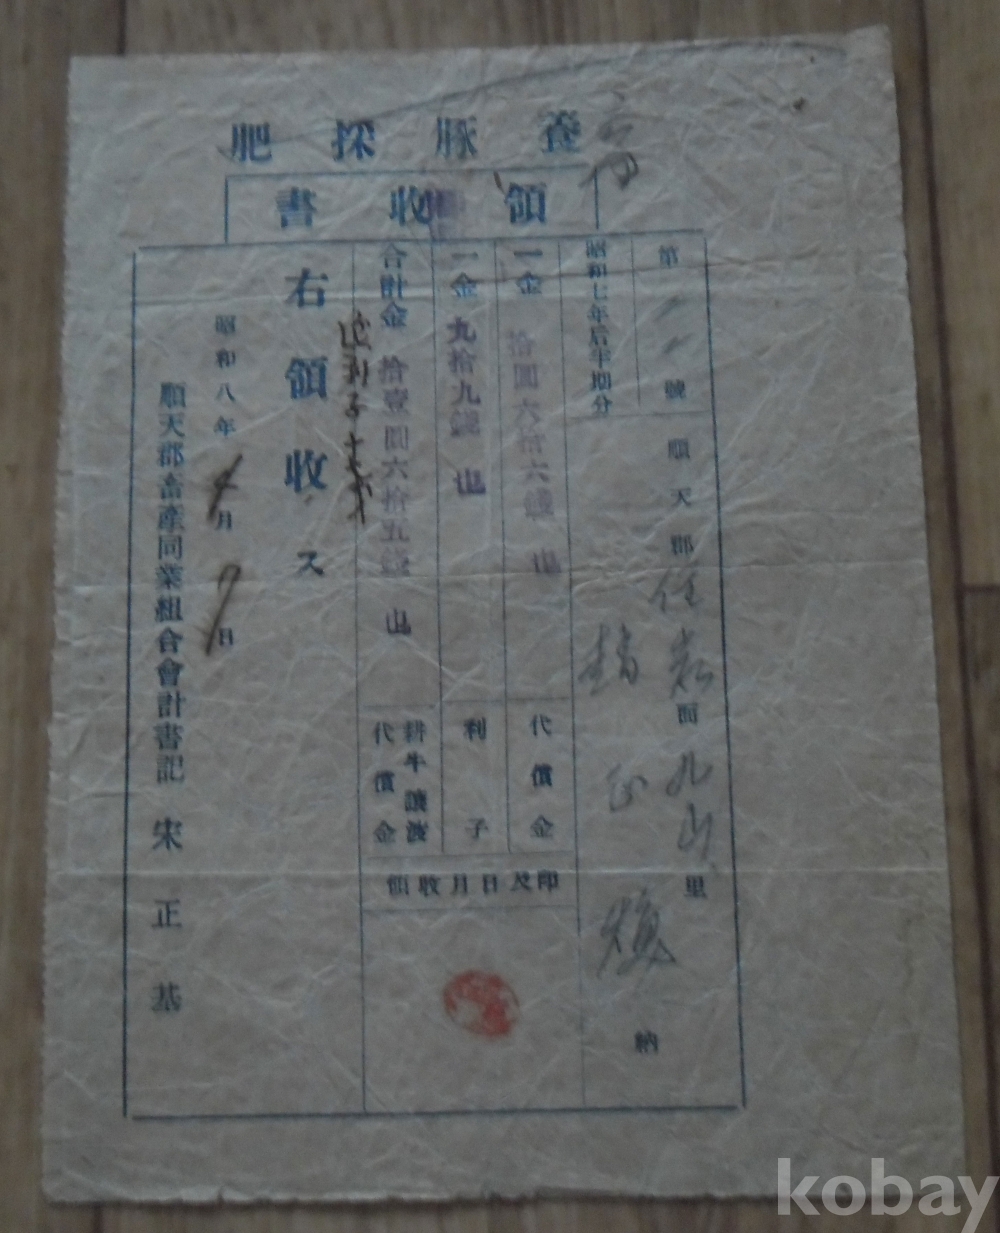 養豚採肥
領收書
第 號
順天郡住岩面九山里
昭和七年后半期分
趙 煥 納
一金 拾圓六拾六錢也 代償金
一金 九拾九錢也 利子
合計金 拾壹圓六拾五錢也 耕牛讓渡代償金
領收月日及印
右領收ス
昭和八年4月7日
順天郡畜產同業組合會計書記 宋正基
kobay